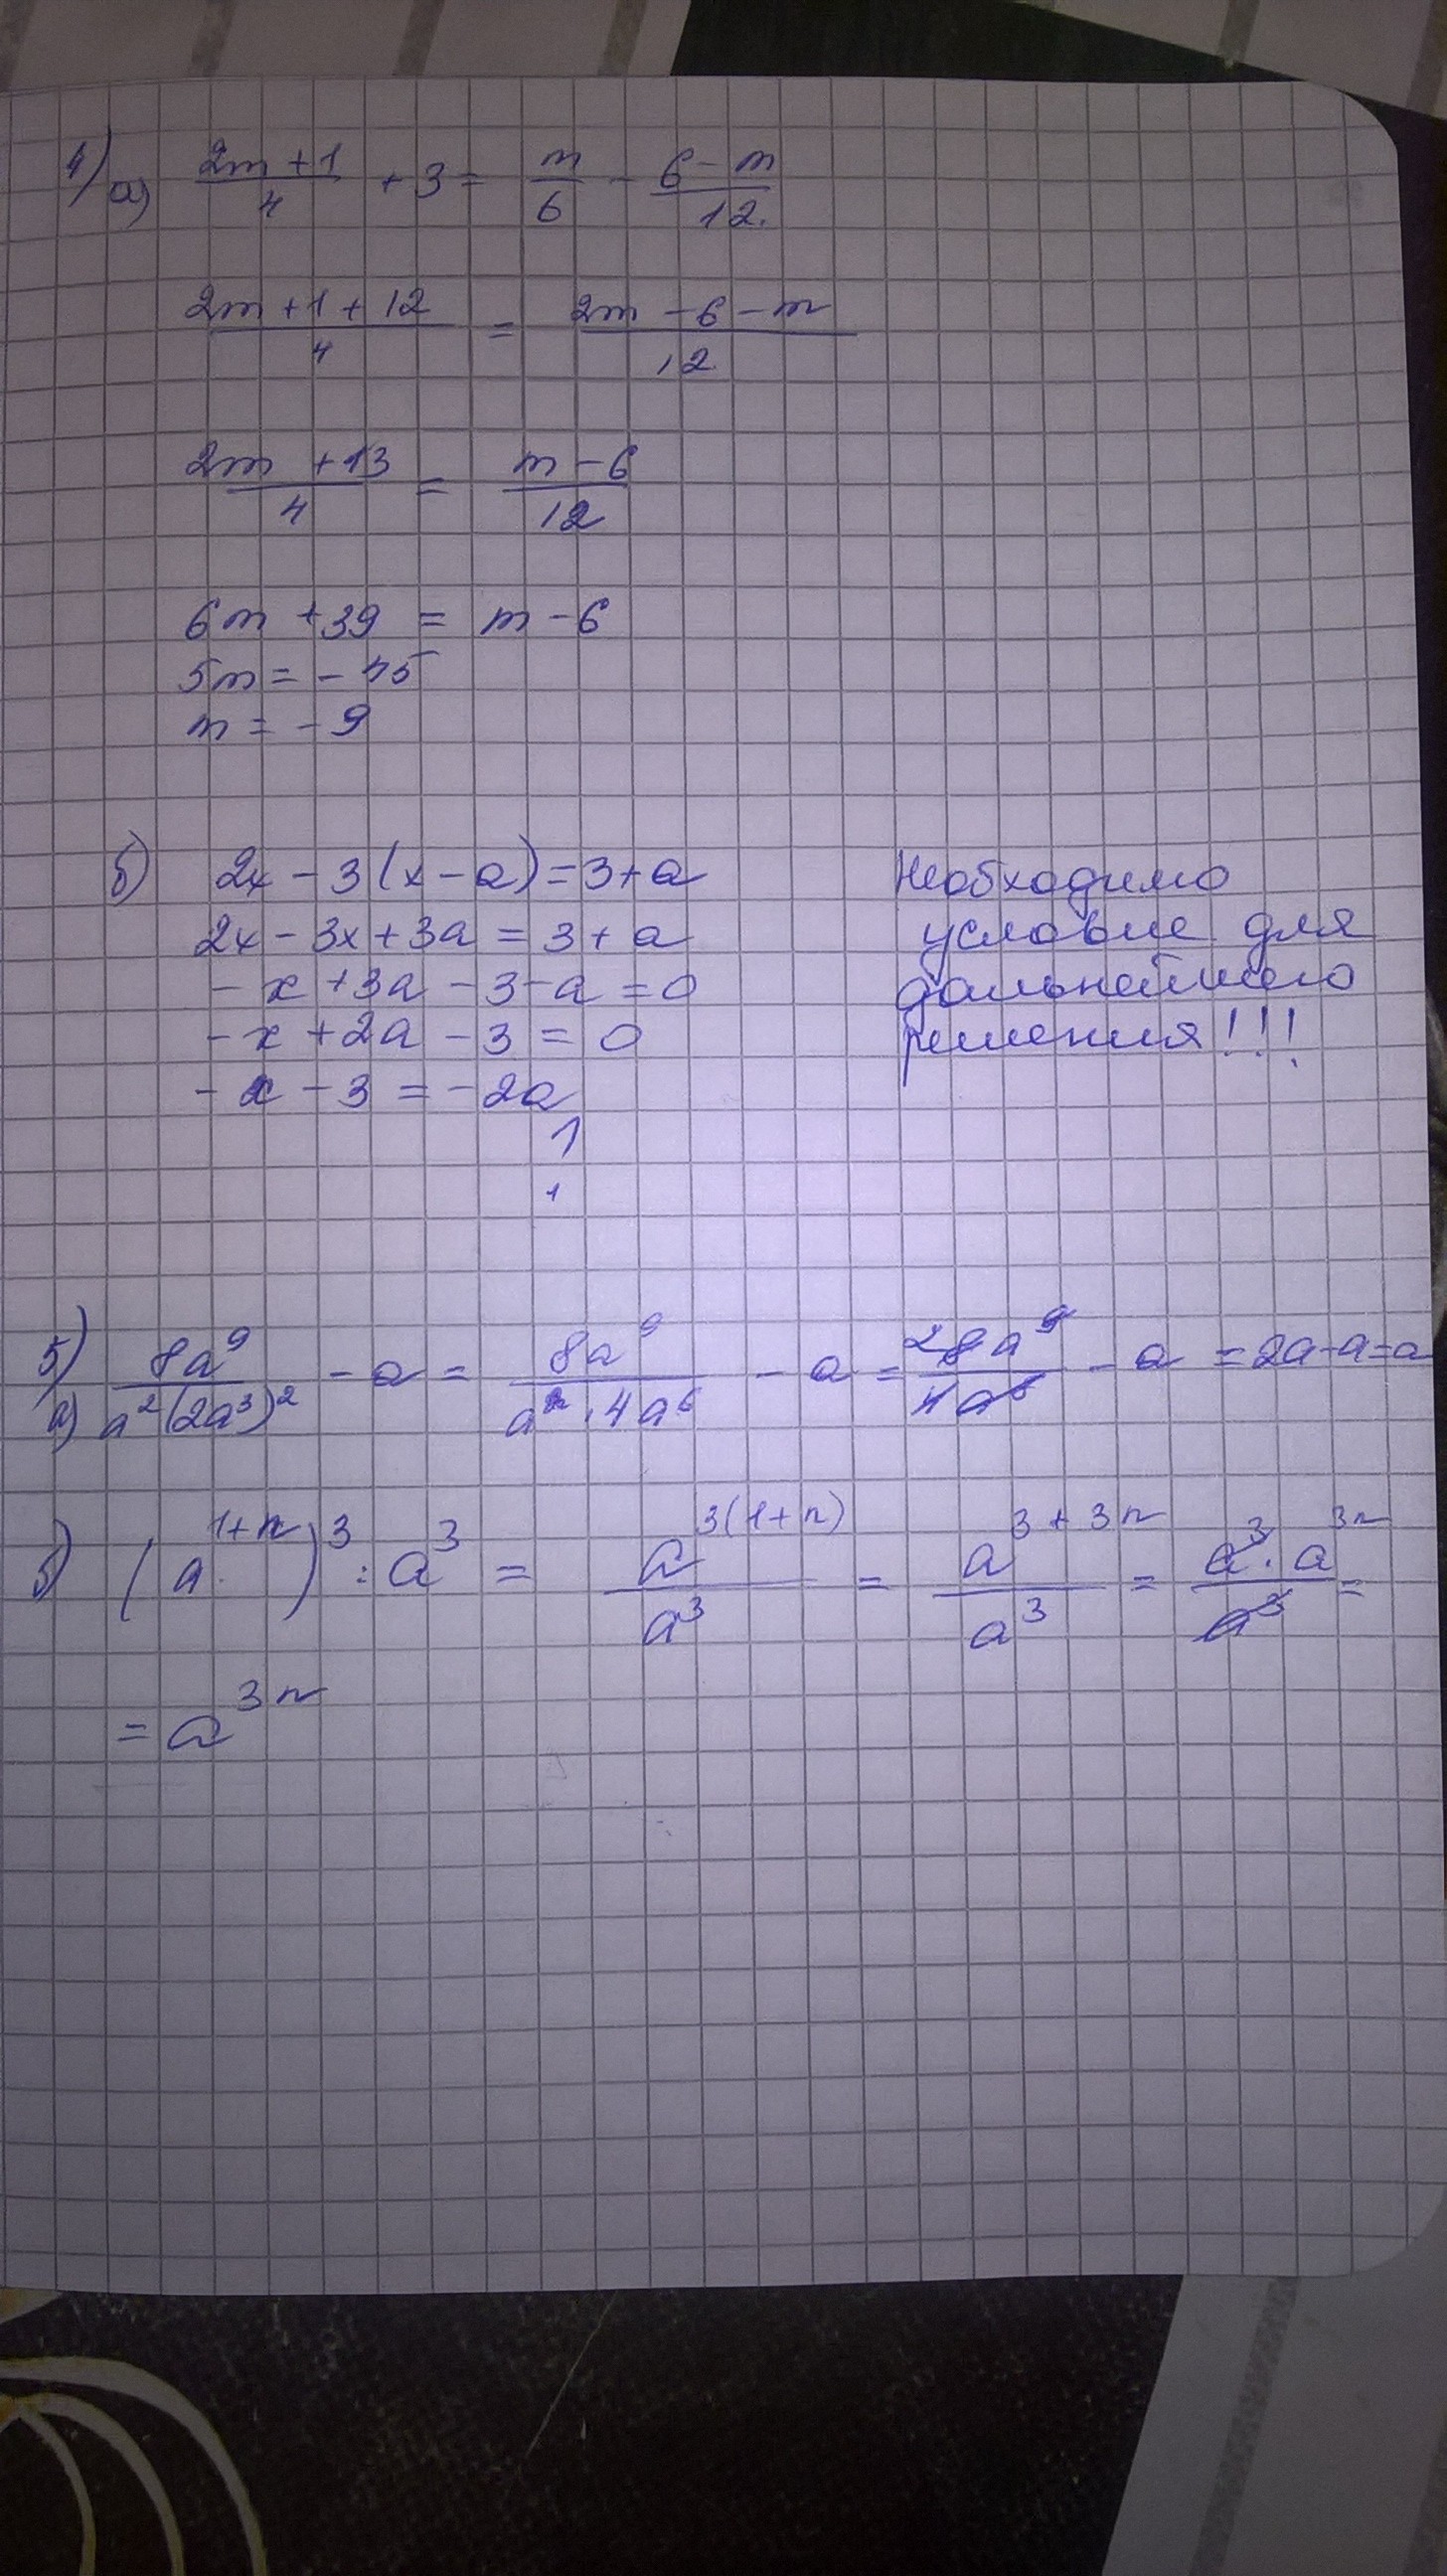 4) а) (2m + 1)/4 + 3 = m/6 - (6 - m)/12
(2m + 1 + 12)/4 = (2m - 6 - m)/12
(2m + 13)/4 = (m - 6)/12
6m + 39 = m - 6
5m = - 45
m = - 9
б) 2x - 3(x - a) = 3 + a
2x - 3x + 3a = 3 + a
- x + 3a - 3 - a = 0
- x + 2a - 3 = 0
- x - 3 = - 2a
Необходимо
условие для
дальнейшего
решения!!!
5)
а) 8a⁹/(a²(2a³)²) - a = 8a⁹/(a² · 4a⁶) - a = 8a⁹/4a⁸ - a = 2a - a = a
б) (a¹⁺ⁿ)³ : a³ = a³⁽¹⁺ⁿ⁾/a³ = a³⁺³ⁿ/a³ = (a³ · a³ⁿ)/a³ =
= a³ⁿ